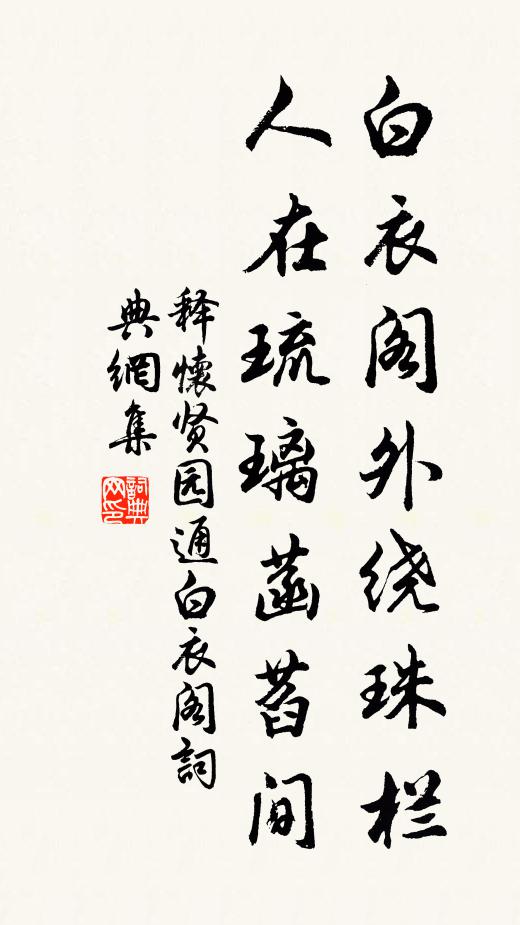 白衣阁外绕珠栏
人在琉璃菡萏间
释懷贤园通白衣阁詞
典網集
詞典网印